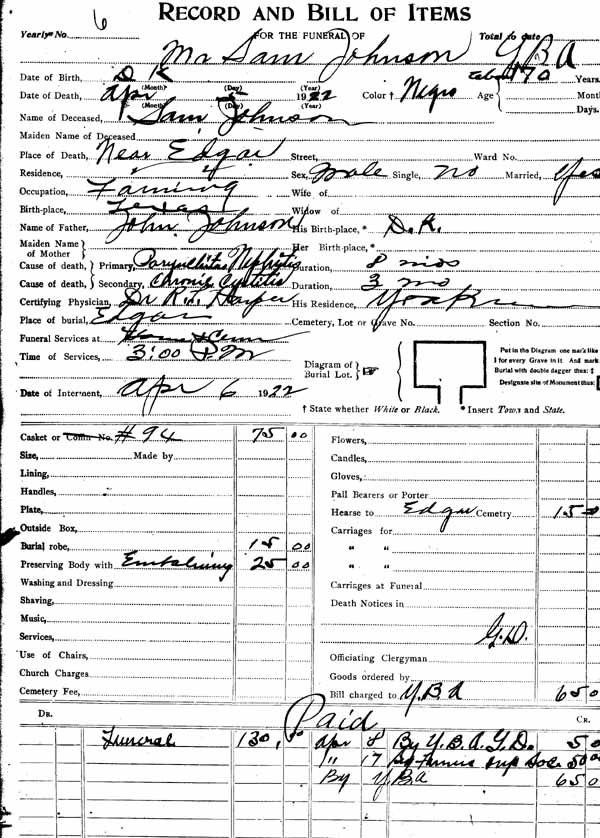 RECORD AND BILL OF ITEMS
Yearly No. 6 FOR THE FUNERAL OF Total to date
Mr Sam Johnson Y.B.A
Date of Birth, D K (Month) (Day) (Year) Color † Negro Age about 70 Years.
Date of Death, Apr 5 1922 (Month) (Day) (Year) Months
Days.
Name of Deceased, Sam Johnson
Maiden Name of Deceased
Place of Death, Near Edgar Street, Ward No.
Residence, Sex, Male Single, No Married, Yes
Occupation, Farming Wife of
Birth-place, Texas Widow of
Name of Father, John Johnson His Birth-place,* D.K.
Maiden Name of Mother Her Birth-place,*
Cause of death, Primary, Nephritis Duration, 8 mos
Cause of death, Secondary, Chronic Cystitis Duration, 3 mo
Certifying Physician, Dr Harper His Residence, Yoakum
Place of burial, Edgar Cemetery, Lot or Grave No. Section No.
Funeral Services at
Time of Services, 3:00 P M
Diagram of Burial Lot. ☞
Put in the Diagram one mark like
I for every Grave in it. And mark
Burial with double dagger thus: ‡
Designate site of Monument thus:
Date of Interment, Apr 6 1922
† State whether White or Black. * Insert Town and State.
Casket or Coffin No. # 94 75 00
Size, Made by
Lining,
Handles,
Plate,
Outside Box,
Burial robe, 15 00
Preserving Body with Embalming 25 00
Washing and Dressing
Shaving,
Music,
Services,
Use of Chairs,
Church Charges
Cemetery Fee,
Flowers,
Candles,
Gloves,
Pall Bearers or Porter
Hearse to Edgar Cemetry 15
Carriages for
" "
" "
Carriages at Funeral
Death Notices in
G.D.
Officiating Clergyman
Goods ordered by
Bill charged to Y.B.A 65 0
DR. Paid CR.
Funeral 130,00 Apr 8 By Y.B.A. G.D. 50
" 17 By 50
By Y.B.A 65 0